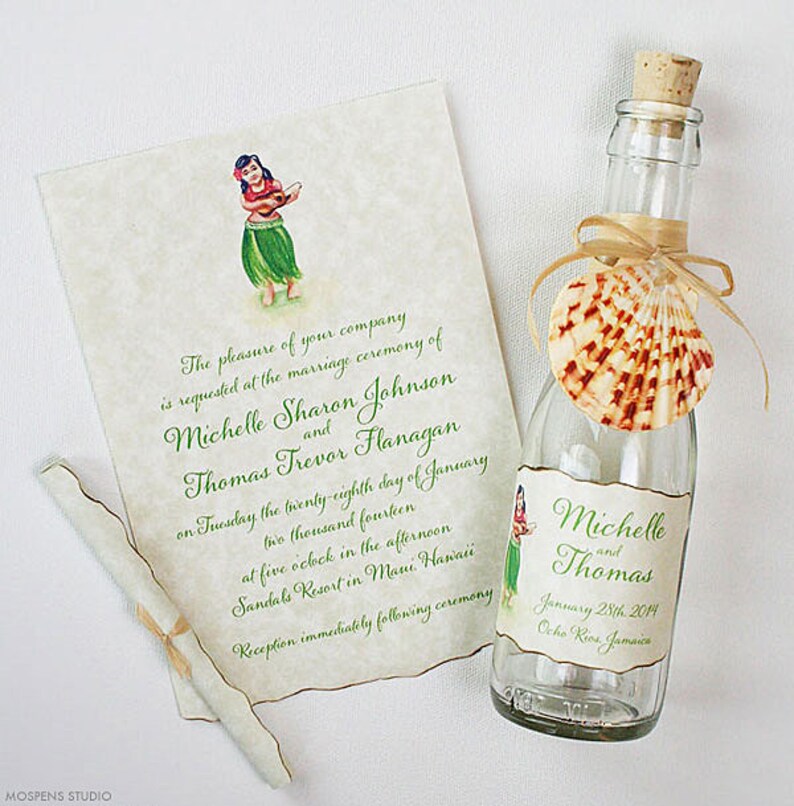 The pleasure of your company
is requested at the marriage ceremony of
Michelle Sharon Johnson
and
Thomas Trevor Flanagan
on Tuesday, the twenty-eighth day of January
two thousand fourteen
at five o'clock in the afternoon
Sandals Resort in Maui, Hawaii
Reception immediately following ceremony
Michelle
and
Thomas
January 28th, 2014
Ocho Rios, Jamaica
MOSPENS STUDIO